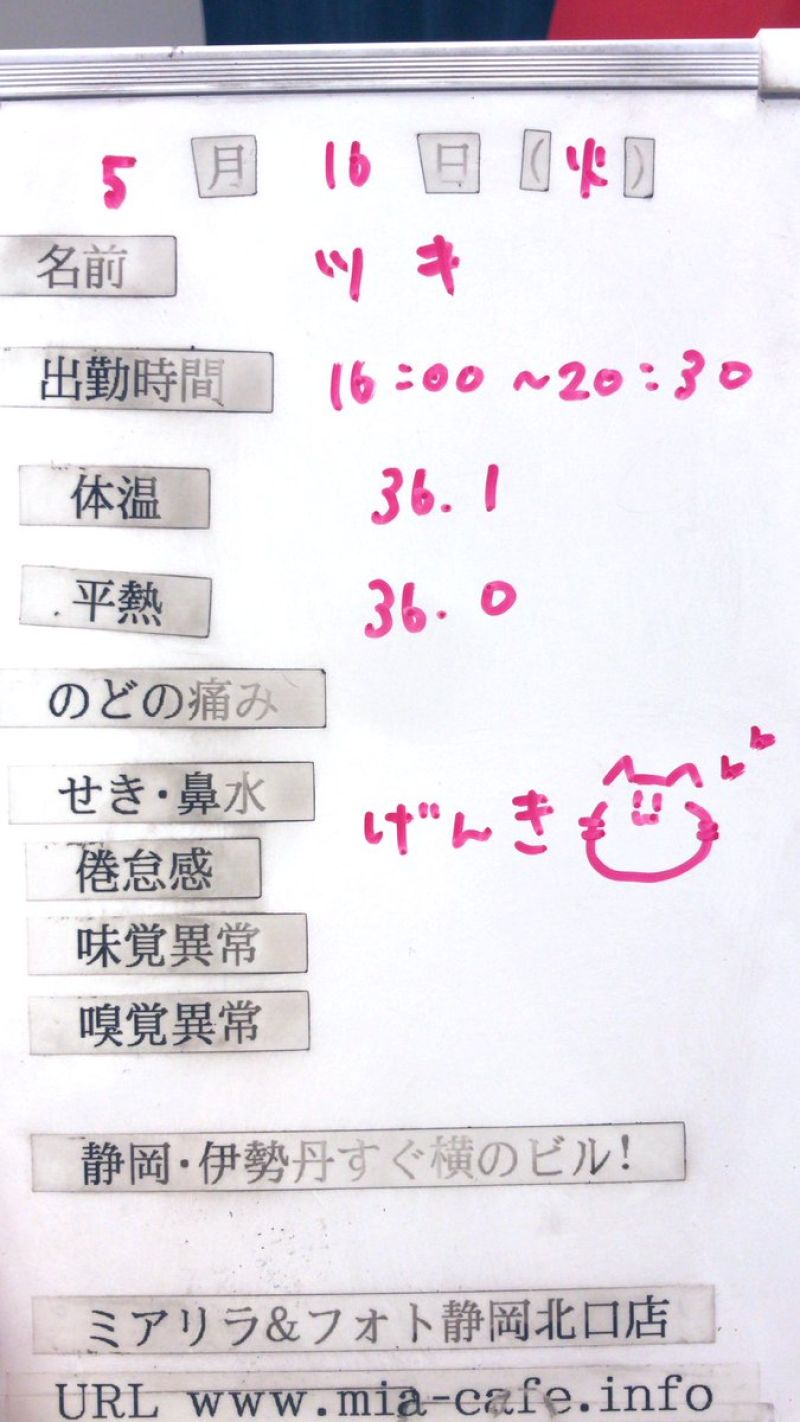 5月16日(火)
名前 ツキ
出勤時間 16:00~20:30
体温 36.1
平熱 36.0
のどの痛み
せき・鼻水 げんき
倦怠感
味覚異常
嗅覚異常
静岡・伊勢丹すぐ横のビル!
ミアリラ&フォト静岡北口店
URL www.mia-cafe.info